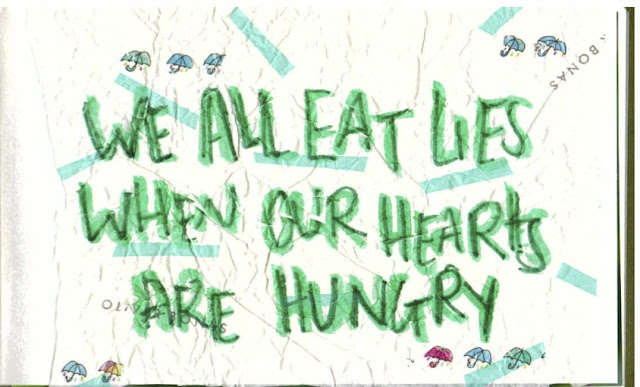 WE ALL EAT LIES
WHEN OUR HEARTS
ARE HUNGRY
BONAS